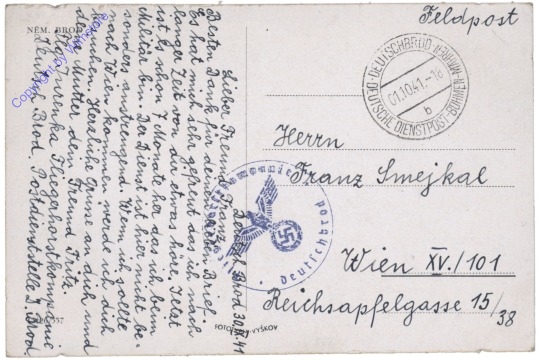 NĚM. BROD
Feldpost
DEUTSCHBROD
DEUTSCHE DIENSTPOST BÖHMEN-MÄHREN
01.10.41.-18
b
Deutsch Brod 30.IX.41
Lieber Freund Franz!
Besten Dank für deinen lieben Brief.
Es hat mich sehr gefreut das ich nach
langer Zeit von dir etwas höre. Jetzt
ist es schon 7 Monate her das ich beim
Militär bin. Der Dienst ist hier nicht be-
sonders anstrengend. Wenn ich sollte
nach Wien kommen werde ich dich
besuchen. Herzliche Grüsse an dich und
Mutter dein Freund Fritz.
Fliegerhorstkompanie
Deutsch Brod. Postdienststelle D. Brod.
Herrn
Franz Smejkal
Wien XV./101
Reichsapfelgasse 15/38
Deutschbrod
FOTO VYŠKOV
Copyright by